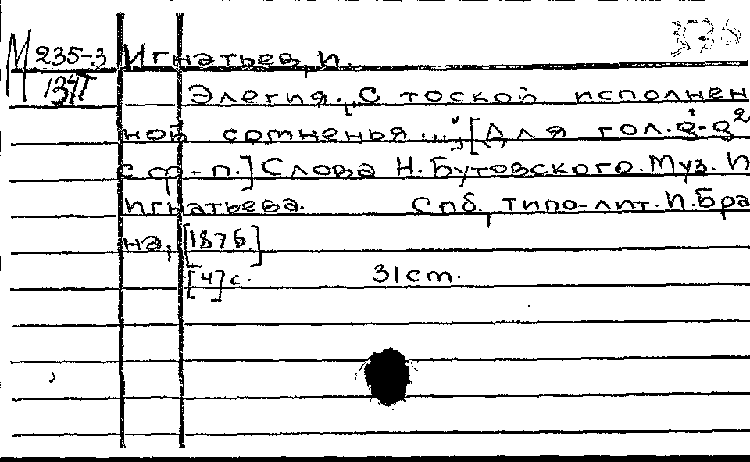 336
М 235-3 Игнатьев, И.
1347 Элегия. „С тоской исполнен
ной сомненья..." [Для гол. g¹-g²
с ф.-п.] Слова Н. Бутовского. Муз. И
Игнатьева. Спб., типо-лит. И. Бра
на, [1876]
[4] с. 31 cm.